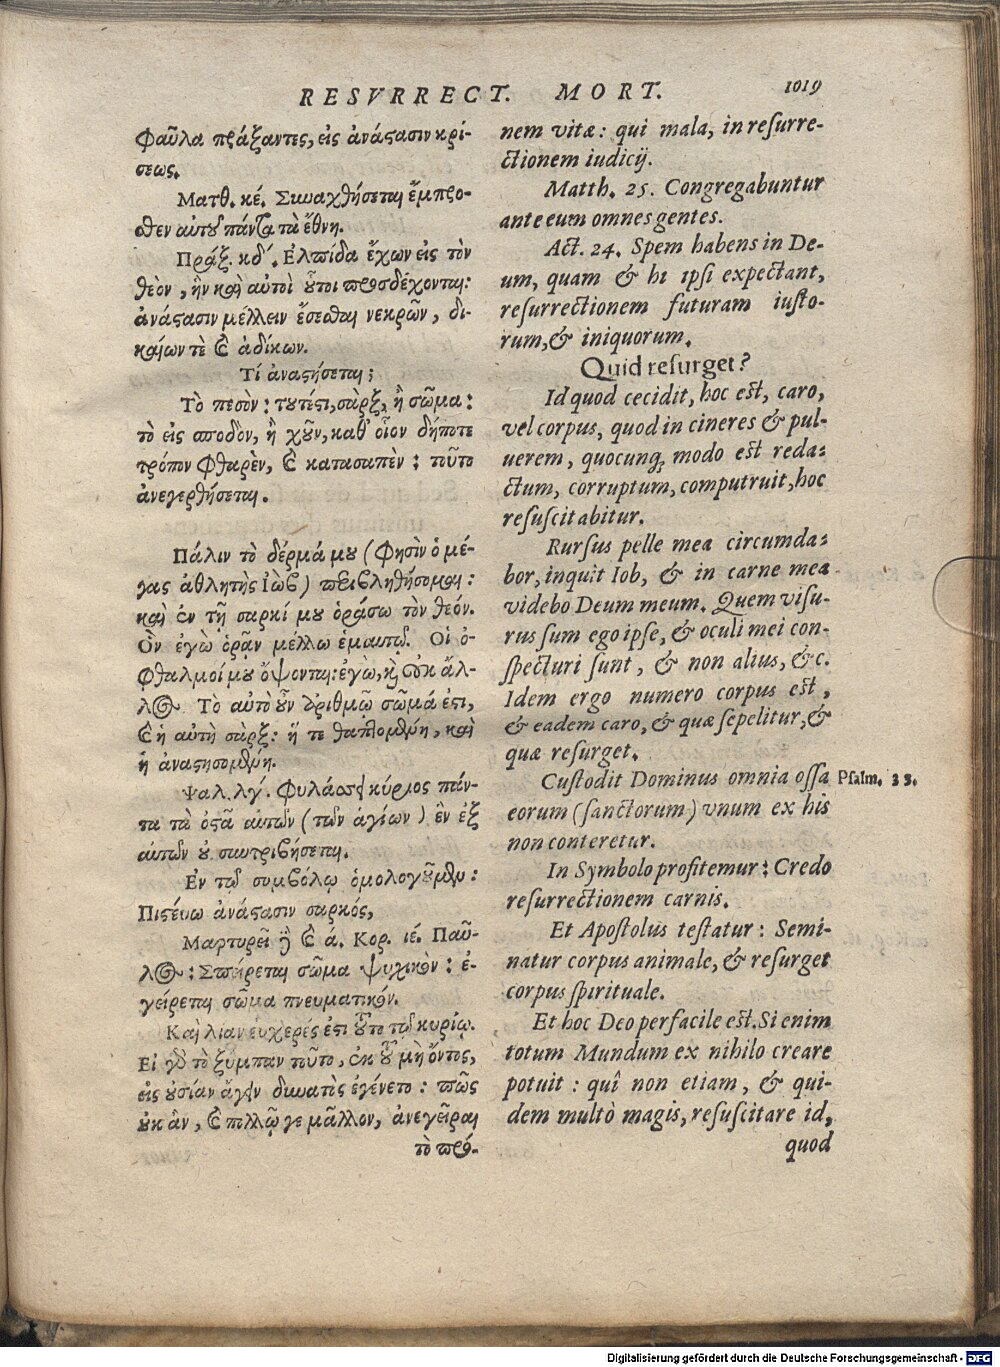 RESVRRECT. MORT. 1019
φαῦλα πράξαντες, εἰς ἀνάστασιν κρί-
σεως.
Ματθ. κέ. Συναχθήσεται ἔμπρο-
σθεν αὐτοῦ πάντα τὰ ἔθνη.
Πράξ. κδ΄. Ελπίδα ἔχων εἰς τὸν
θεὸν, ἣν καὶ αὐτοὶ οὗτοι προσδέχονται:
ἀνάστασιν μέλλειν ἔσεσθαι νεκρῶν, δι-
καίων τὲ καὶ ἀδίκων.
Τί ἀναστήσεται;
Τὸ πεσὸν: τουτέστι, σὰρξ, ἢ σῶμα:
τὸ εἰς σποδὸν, ἢ χοῦν, καθ' οἷον δήποτε
τρόπον φθαρὲν, καὶ κατασαπὲν: τοῦτο
ἀνεγερθήσεται.
Πάλιν τὸ δέρμά μου (φησὶν ὁ μέ-
γας ἀθλητὴς Ιὼβ) περιβληθήσομαι:
καὶ ἐν τῇ σαρκί μου ὁράσω τὸν θεόν.
Ὃν ἐγὼ ὁρᾷν μέλλω ἐμαυτῷ. Οἱ ὀ-
φθαλμοί μου ὄψονται: ἐγὼ, καὶ οὐκ ἄλ-
λος. Τὸ αὐτὸ οὖν ἀριθμῷ σῶμά ἐστι,
καὶ ἡ αὐτὴ σὰρξ: ἥ τε θαπτομένη, καὶ
ἡ ἀναστησομένη.
Ψαλ. λγ΄. Φυλάσσει κύριος πάν-
τα τὰ ὀστᾶ αὐτῶν (τῶν ἁγίων) ἓν ἐξ
αὐτῶν οὐ συντριβήσεται.
Εν τῷ συμβόλῳ ὁμολογοῦμεν:
Πιστεύω ἀνάστασιν σαρκός,
Μαρτυρεῖ γὰρ καὶ ά. Κορ. ιέ. Παῦ-
λος: Σπείρεται σῶμα ψυχικὸν: ἐ-
γείρεται σῶμα πνευματικόν.
Καὶ λίαν εὐχερές ἐστι τοῦτο τῷ κυρίῳ.
Εἰ γὰρ τὸ ξύμπαν τοῦτο, ἐκ τοῦ μὴ ὄντος,
εἰς οὐσίαν ἄγειν δυνατὸς ἐγένετο: πῶς
οὐκ ἂν, καὶ πολλῷ γε μᾶλλον, ἀνεγεῖραι
τὸ πρό-
nem vitæ: qui mala, in resurre-
ctionem iudicij.
Matth. 25. Congregabuntur
ante eum omnes gentes.
Act. 24. Spem habens in De-
um, quam & hi ipsi expectant,
resurrectionem futuram iusto-
rum, & iniquorum.
Quid resurget?
Id quod cecidit, hoc est, caro,
vel corpus, quod in cineres & pul-
uerem, quocunq; modo est reda-
ctum, corruptum, computruit, hoc
resuscitabitur.
Rursus pelle mea circumda-
bor, inquit Iob, & in carne mea
videbo Deum meum. Quem visu-
rus sum ego ipse, & oculi mei con-
specturi sunt, & non alius, &c.
Idem ergo numero corpus est,
& eadem caro, & quæ sepelitur, &
quæ resurget.
Custodit Dominus omnia ossa
eorum (sanctorum) vnum ex his
non conteretur.
In Symbolo profitemur: Credo
resurrectionem carnis.
Et Apostolus testatur: Semi-
natur corpus animale, & resurget
corpus spirituale.
Et hoc Deo perfacile est. Si enim
totum Mundum ex nihilo creare
potuit: quî non etiam, & qui-
dem multò magis, resuscitare id,
quod
Psalm. 33.
Digitalisierung gefördert durch die Deutsche Forschungsgemeinschaft - DFG